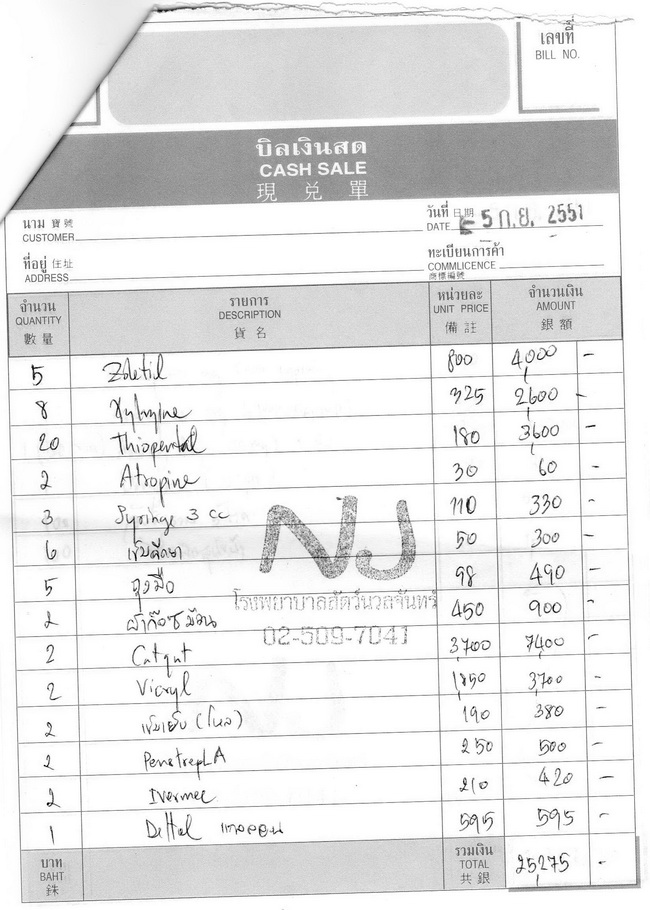 เลขที่
BILL NO.
บิลเงินสด
CASH SALE
現 兌 單
นาม 寶號
CUSTOMER
วันที่ 日期
DATE 5 ก.ย. 2551
ที่อยู่ 住址
ADDRESS
ทะเบียนการค้า
COMMLICENCE
商標編號
จำนวน รายการ หน่วยละ จำนวนเงิน
QUANTITY DESCRIPTION UNIT PRICE AMOUNT
數量 貨名 備註 銀額
5 Zoletil 800 4,000 -
8 Xylazine 325 2,600 -
20 Thiopental 180 3,600 -
2 Atropine 30 60 -
3 Syringe 3 cc 110 330 -
6 เข็มฉีดยา 50 300 -
5 ถุงมือ 98 490 -
2 ผ้าก๊อซม้วน 450 900 -
2 Catgut 3,700 7,400 -
2 Vicryl 1,850 3,700 -
2 เข็มเย็บ (โหล) 190 380 -
2 PenstrepLA 250 500 -
2 Ivermec 210 420 -
1 Dettol 595 595 -
NJ
โรงพยาบาลสัตว์นวลจันทร์
02-509-7041
บาท รวมเงิน
BAHT TOTAL 25,275 -
銖 共銀